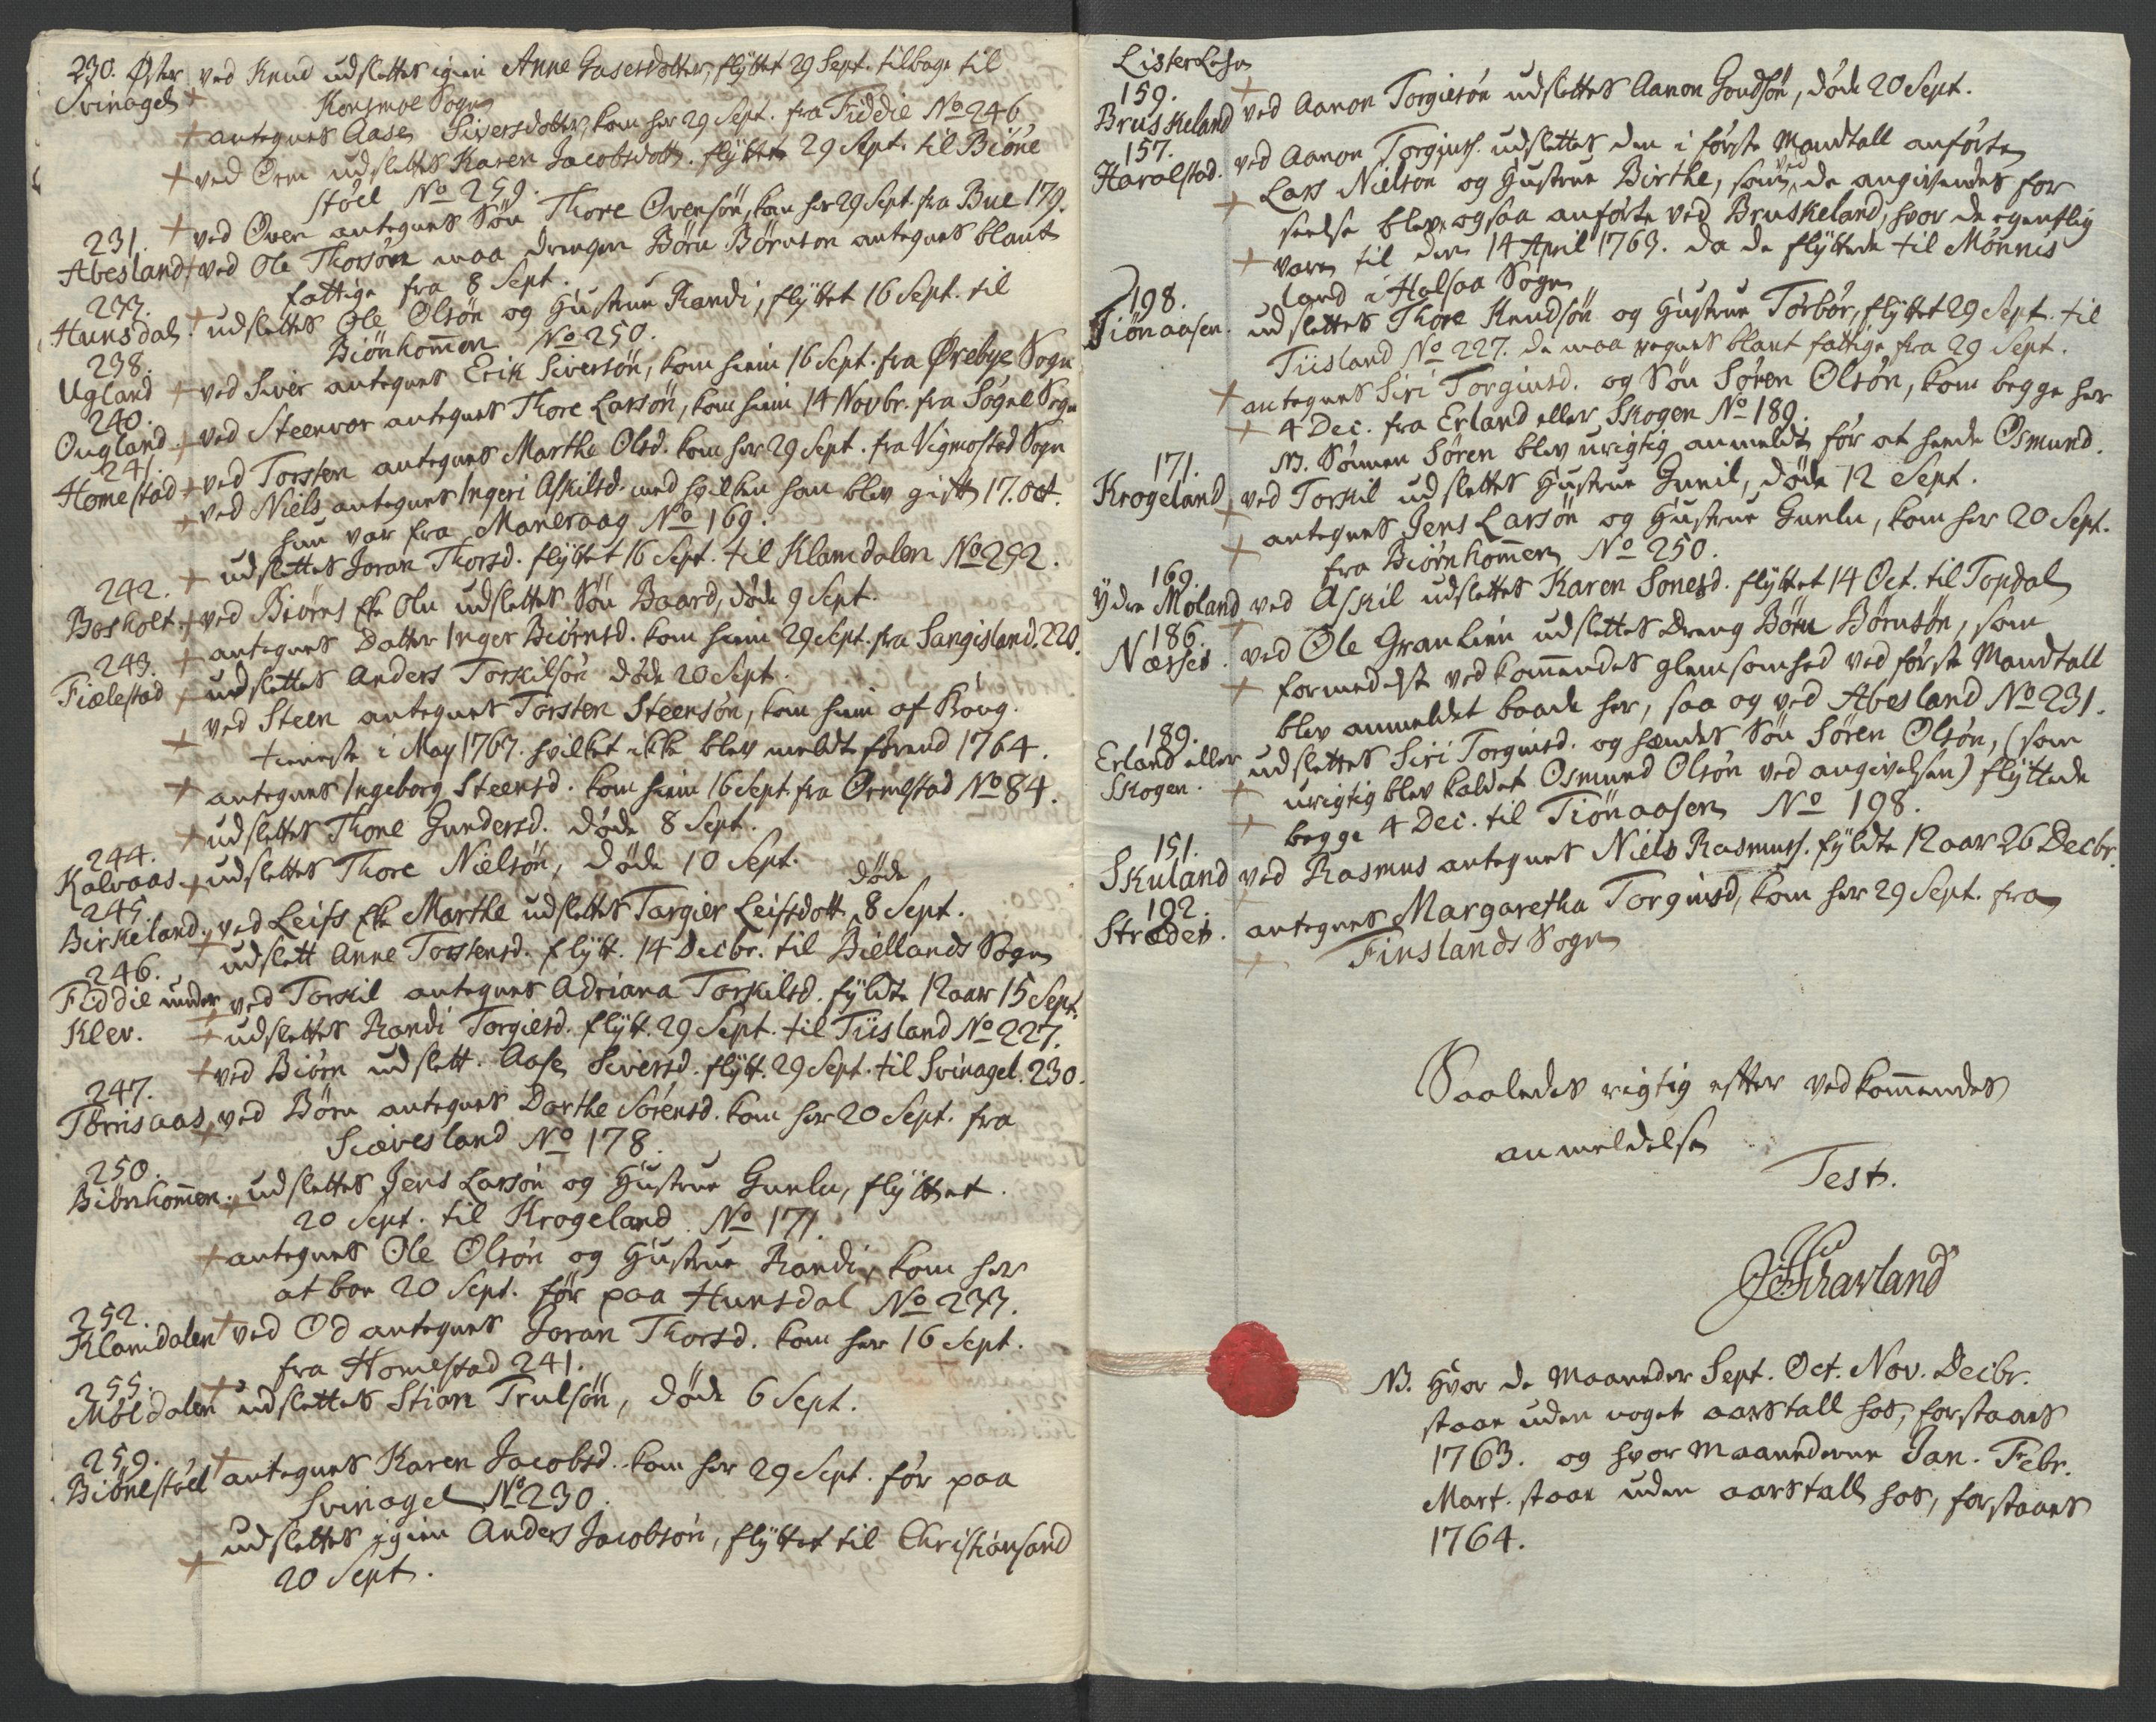 230. Øster ved Knud udslettes igien Anne Gasesdotter, flyttet 29 Sept. tilbage til
Svinagel Konsmoe Sogn
antegnes Aase Siversdotter, kom her 29 Sept. fra Fiddie No 246
ved Orm udslettes Karen Jacobsdott. flyttet 29 Sept. til Biöne
stöel No 259.
ved Oven antegnes Sön Thore Ovensön, kom her 29 Sept. fra Bue 179.
231.
Abesland ved Ole Thorsön maa drengen Börn Börnson antegnes blant
fattige fra 8 Sept.
233.
Hunsdal. udslettes Ole Olsön og Hustrue Randi, flyttet 16 Sept. til
Biönhommen No 250.
238.
Ugland ved Siver antegnes Erik Siversön, kom hiem 16 Sept. fra Örebye Sogn
240.
Ougland ved Steenvor antegnes Thore Larsön, kom hiem 14 Novbr. fra Sögne Sogn
241.
Homestad ved Torsten antegnes Marthe Olsd. kom her 29 Sept. fra Vigmostad Sogn
ved Niels antegnes Ingeri Askilsd. med hvilken han blev gift 17. Oct.
hun var fra Moneraag No 169.
udslettes Joran Thorsd. flyttet 16 Sept. til Klamdalen No 252.
242.
Bosholt. ved Biörns Eke Olu udslettes Sön Baard, döde 9 Sept.
antegnes Datter Inger Biörnsd. kom hiem 29 Sept. fra Sangisland. 220.
243.
Fiælestad udslettes Anders Torkilsön döde 20 Sept.
ved Steen antegnes Torsten Steensön, kom hiem af Kong.
tieneste i May 1763. hvilket ikke blev meldt förend 1764.
antegnes Ingeborg Steensd. kom hiem 16 Sept. fra Ormestad No 84.
udslettes Thone Gundersd. döde 8 Sept.
244.
Kalvaas. udslettes Thore Nielsön, döde 10 Sept.
245. döde
Birkeland. ved Leifs Eke Marthe udslettes Targier Leifsdott. 8 Sept.
udslett Anne Torstensd. flytt. 14 Decbr. til Biellands Sogn
246.
Fiddie under ved Torkil antegnes Adriana Torkilsd. fyldte 12 aar 15 Sept.
Klev. udslettes Randi Torgiesd. flytt. 29 Sept. til Tiisland No 227.
ved Biörn udslett. Aase Siversd. flytt. 29 Sept. til Svinagel. 230.
247.
Törrisaas ved Börn antegnes Dorthe Sörensd. kom her 20 Sept. fra
Siævesland No 178.
250.
Biönhommen. udslettes Jens Larsön og Hustrue Gunlu, flyttet
20 Sept. til Krogeland No 171.
antegnes Ole Olsön og Hustrue Randi, kom her
at boe 20 Sept. för paa Hunsdal No 233.
252.
Klamdalen ved Od antegnes Joran Thorsd. kom her 16 Sept.
fra Homestad 241.
255.
Möldalen udslettes Stian Trulsön, döde 6 Sept.
259.
Biönestöel antegnes Karen Jacobsd. kom her 29 Sept. för paa
Svinagel No 230.
udslettes igien Anders Jacobsön, flyttet til Christiansand
20 Sept.
Lister Lehn
159.
Bruskeland ved Aanon Torgiesön udslettes Aanon Gundsön, döde 20 Sept.
157.
Haralstad. ved Aanon Torgiuss. udslettes den i förste Mandtall anförte
Lars Nielson og Hustrue Birthe, som ved de angivendes for
seelse blev ogsaa anförte ved Bruskeland, hvor de egentlig
vare til den 14 April 1763. da de flyttede til Mönnis
land i Halsaa Sogn
198.
Tiönaasen. udslettes Thore Knudsön og Hustrue Torbör, flyttet 29 Sept. til
Tiisland No 227. de maa regnes blant fattige fra 29 Sept.
antegnes Siri Torgiusd. og Sön Sören Olsön, kom begge her
4 Dec. fra Erland eller Skogen No 189.
NB. Sönnen Sören blev urigtig anmeldt för at heede Osmund.
171.
Krogeland ved Torkil udslettes Hustrue Gunil, döde 12 Sept.
antegnes Jens Larsön og Hustrue Gunlu, kom her 20 Sept.
fra Biörnhommen No 250.
169.
Ydre Moland ved Askil udslettes Karen Sonesd. flyttet 14 Oct. til Topdal
186.
Næsset. ved Ole Granlien udslettes Dreng Börn Börnsön, som
formedelst vedkommendes glemsomhed ved förste Mandtall
blev anmeldet baade her, saa og ved Abesland No 231.
189.
Erland eller udslettes Siri Torgiusd. og hendes Sön Sören Olsön, (som
Skogen. urigtig blev kaldet Osmund Olsön ved angivelsen) flyttede
begge 4 Dec. til Tiönaasen No 198.
151.
Skuland ved Rasmus antegnes Niels Rasmuss. fyldte 12 aar 26 Decbr.
192.
Strædet. antegnes Margaretha Torgiusd, kom her 29 Sept. fra
Finslands Sogn
Saaledes rigtig efter vedkommendes
anmeldelse
Test.
NB. Hvor de Maaneder Sept. Oct. Nov. Decbr.
staar uden noget aarstall hos, forstaaes
1763. og hvor Maanederne Jan. Febr.
Mart. staar uden aarstall hos, forstaaes
1764.